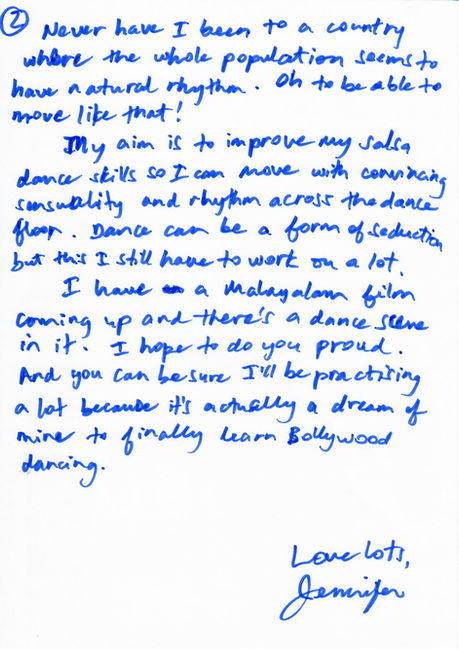 2 Never have I been to a country
where the whole population seems to
have natural rhythm. Oh to be able to
move like that!
My aim is to improve my salsa
dance skills so I can move with convincing
sensuality and rhythm across the dance
floor. Dance can be a form of seduction
but this I still have to work on a lot.
I have a Malayalam film
coming up and there's a dance scene
in it. I hope to do you proud.
And you can be sure I'll be practising
a lot because it's actually a dream of
mine to finally learn Bollywood
dancing.
Love lots,
Jennifer